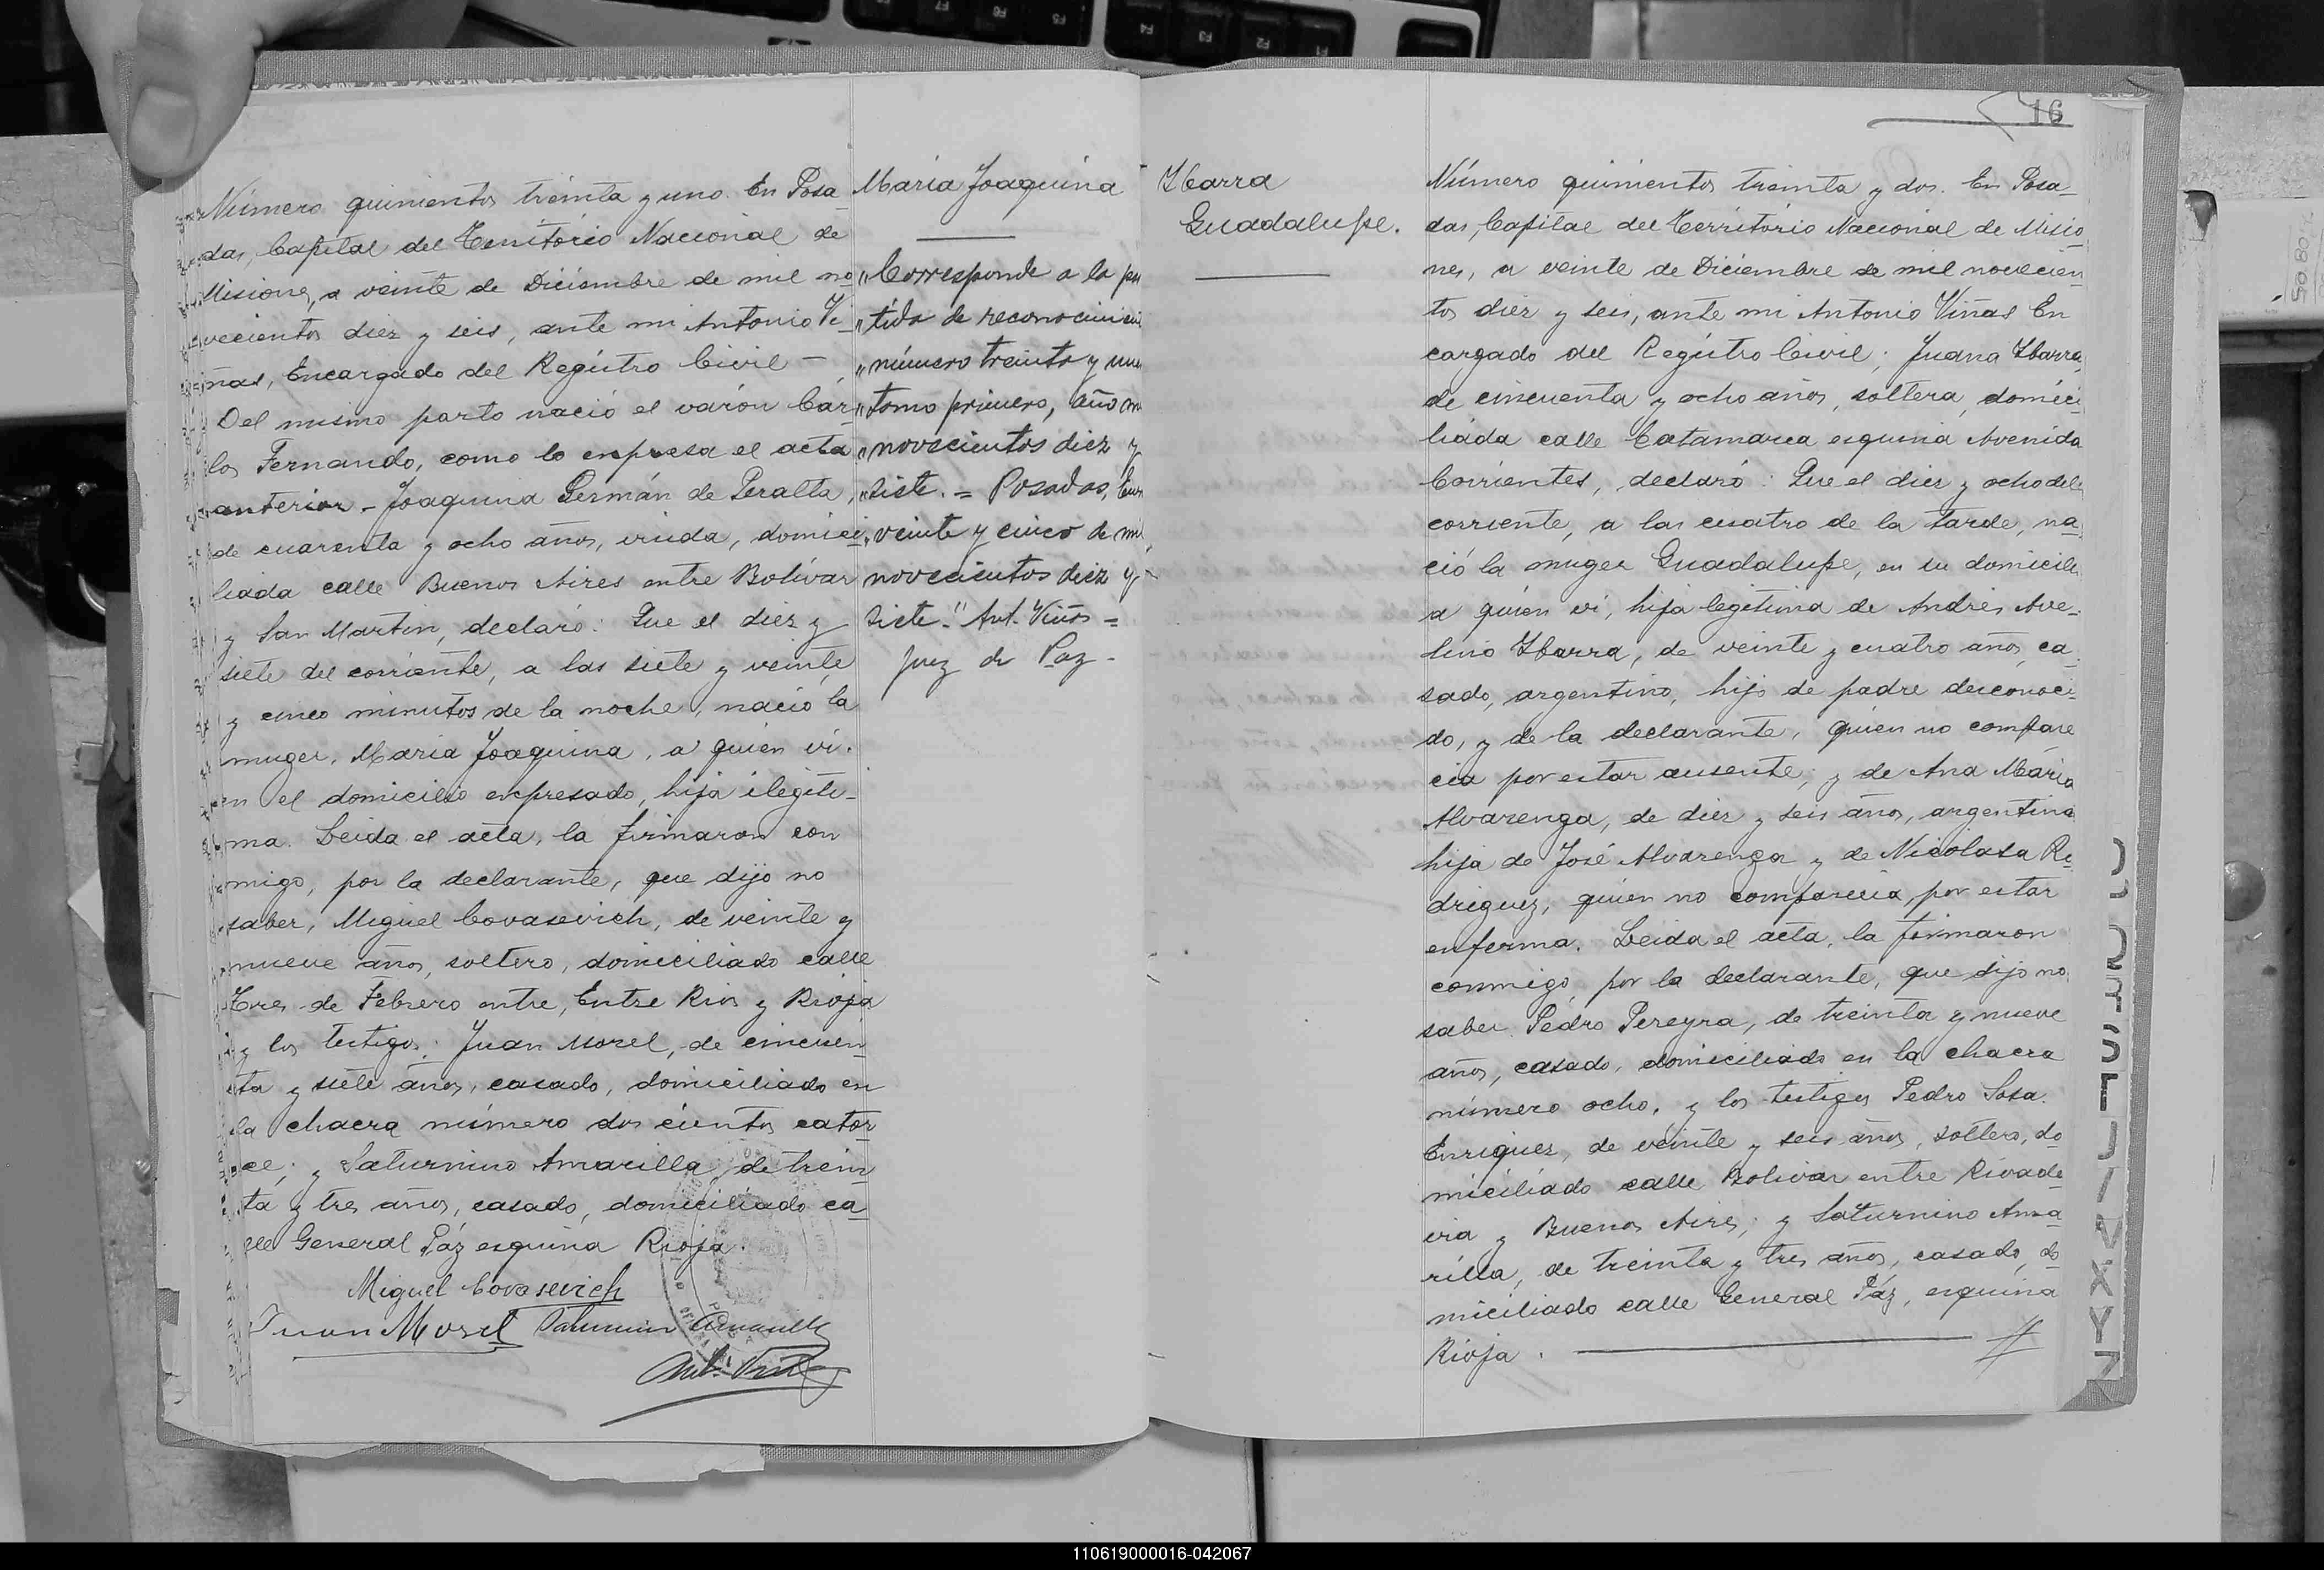 Número quinientos treinta y uno. En Posa-
das, Capital del Territorio Nacional de
Misiones, a veinte de Diciembre de mil no-
vecientos diez y seis, ante mi Antonio Vi-
ñas, Encargado del Registro Civil -
Del mismo parto nació el varón Cár-
los Fernando, como lo expresa el acta
anterior - Joaquina Germán de Peralta,
de cuarenta y ocho años, viuda, domici-
liada calle Buenos Aires entre Bolívar
y San Martin, declaró: Que el diez y
siete del corriente, a las siete y veinte
y cinco minutos de la noche, nació la
muger, Maria Joaquina, a quien vi.
en el domicilio expresado, hija ilegiti-
ma. Leida el acta, la firmaron con
migo, por la declarante, que dijo no
saber, Miguel Covasevich, de veinte y
nueve años, soltero, domiciliado calle
Tres de Febrero entre, Entre Rios y Rioja
y los testigos: Juan Morel, de cincuen-
ta y siete años, casado, domiciliado en
la chacra número dos cientos cator-
ce; y Saturnino Amarilla, de trein-
ta y tres años, casado, domiciliado ca-
lle General Páz esquina Rioja.
Miguel Covasevich
Juan Morel Saturnino Amarilla
Ant. Viñas
María Joaquina
"Corresponde a la par
"tida de reconocimien
"número treinta y uno
"tomo primero, año m
"novecientos diez y
"siete. = Posadas, Ene
"veinte y cinco de mi
novecientos diez y
siete." Ant. Viñas =
juez de Paz -
Ibarra
Guadalupe.
16
Número quinientos treinta y dos. En Posa-
das, Capital del Territorio Nacional de Misio
nes, a veinte de Diciembre de mil novecien
tos diez y seis, ante mi Antonio Viñas En
cargado del Registro Civil; Juana Ibarra,
de cincuenta y ocho años, soltera, domici-
liada calle Catamarca esquina Avenida
Corrientes, declaró: Que el diez y ocho del
corriente, a las cuatro de la tarde, na-
ció la muger Guadalupe, en su domicilio
a quien vi, hija legitima de Andrés Ave-
lino Ibarra, de veinte y cuatro años, ca-
sado, argentino, hijo de padre desconoci-
do, y de la declarante, quien no compare
cia por estar ausente; y de Ana María
Alvarenga, de diez y seis años, argentina
hija de José Alvarenga y de Nicolasa Ro
driguez, quien no comparecia, por estar
enferma. Leida el acta, la firmaron
conmigo, por la declarante, que dijo no
saber Pedro Pereyra, de treinta y nueve
años, casado, domiciliado en la chacra
número ocho, y los testigos Pedro Sosa
Enriquez, de veinte y seis años, soltero, do
miciliado calle Bolivar entre Rivada
via y Buenos Aires; y Saturnino Ama-
rilla, de treinta y tres años, casado, do-
miciliado calle General Páz, esquina
Rioja.
110619000016-042067